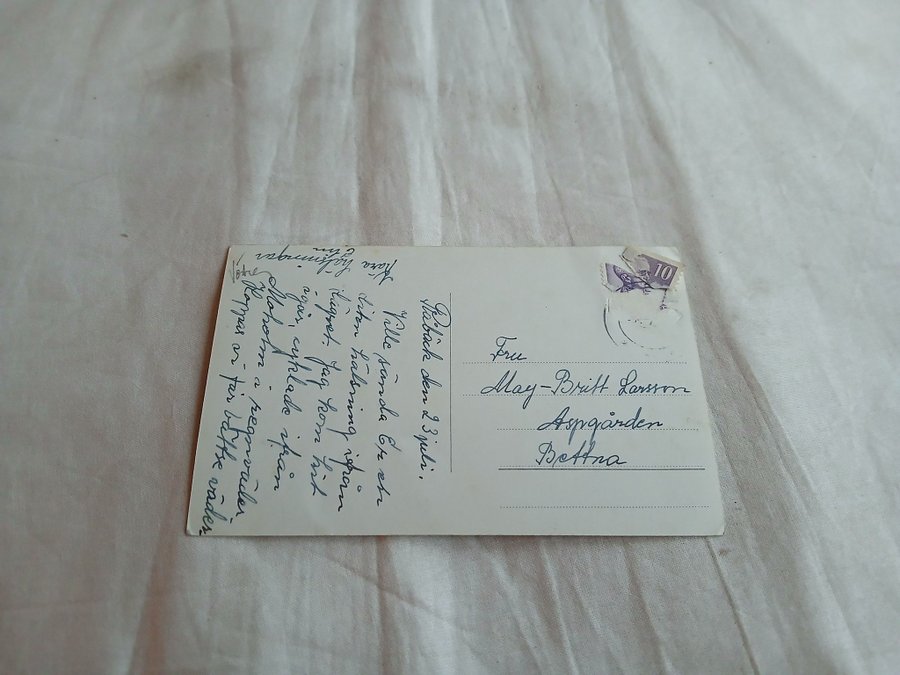 Råbäck den 23 juli.
Ville sända Er en
liten hälsning ifrån
Lugnet. Jag kom hit
igår, cyklade ifrån
Moholm i regnväder
Hoppas vi får bättre väder.
Kära hälsningar
10
Fru
May-Britt Larsson
Aspgården
Bettna